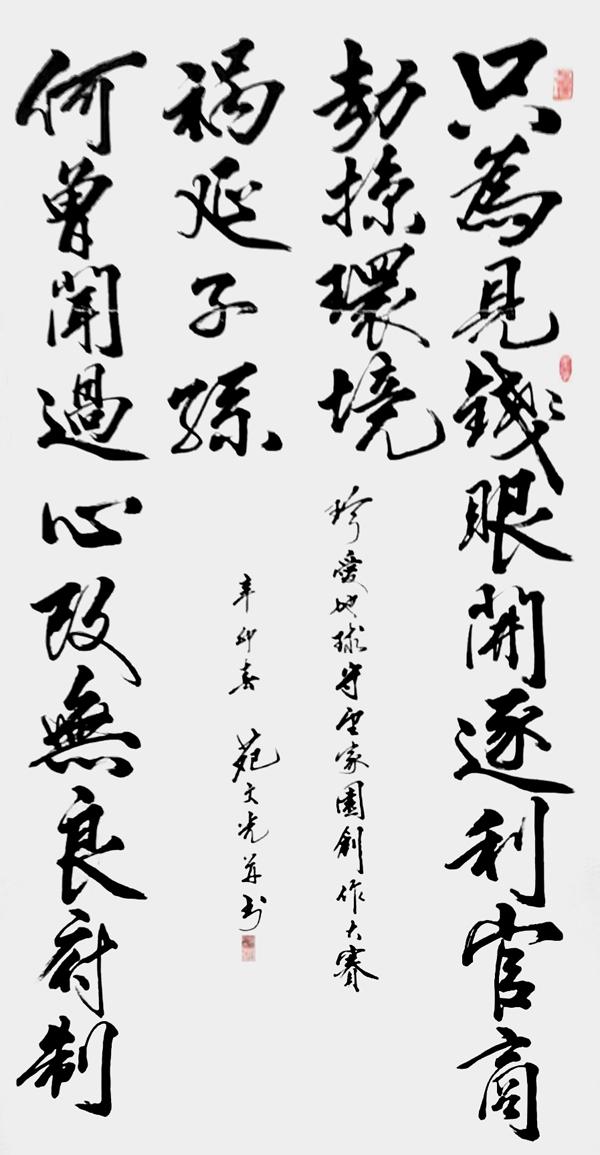 只為見錢眼開逐利官商
劫掠環境
何曾聞過心改無良府制
禍延子孫
珍愛地球守望家園創作大賽
辛卯春 苑文光並書